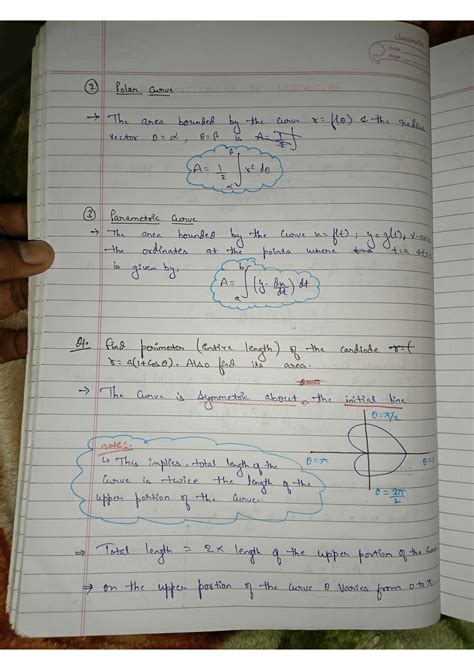 classmate
Date
Page
② Polar Curve
→ The area bounded by the curve r = f(θ) & the radius
vector θ = α, θ = β is A =
A = 1/2 ∫_α^β r² dθ
③ Parametric Curve
→ The area bounded by the curve x = f(t), y = g(t), x-axis
the ordinates at the points where t = a
is given by,
A = ∫_a^b (y. dx/dt) dt
Q1. Find perimeter (entire length) of the cardiode
r = a(1+Cosθ). Also find its area.
→ The Curve is Symmetric about the initial line
θ = π/2
notes:
↳ This implies, total length of the
θ = π
curve is twice the length of the
upper portion of the curve.
θ = 3π/2
⇒ Total length = 2 × length of the upper portion of the curve
⇒ on the upper portion of the curve θ varies from 0 to π